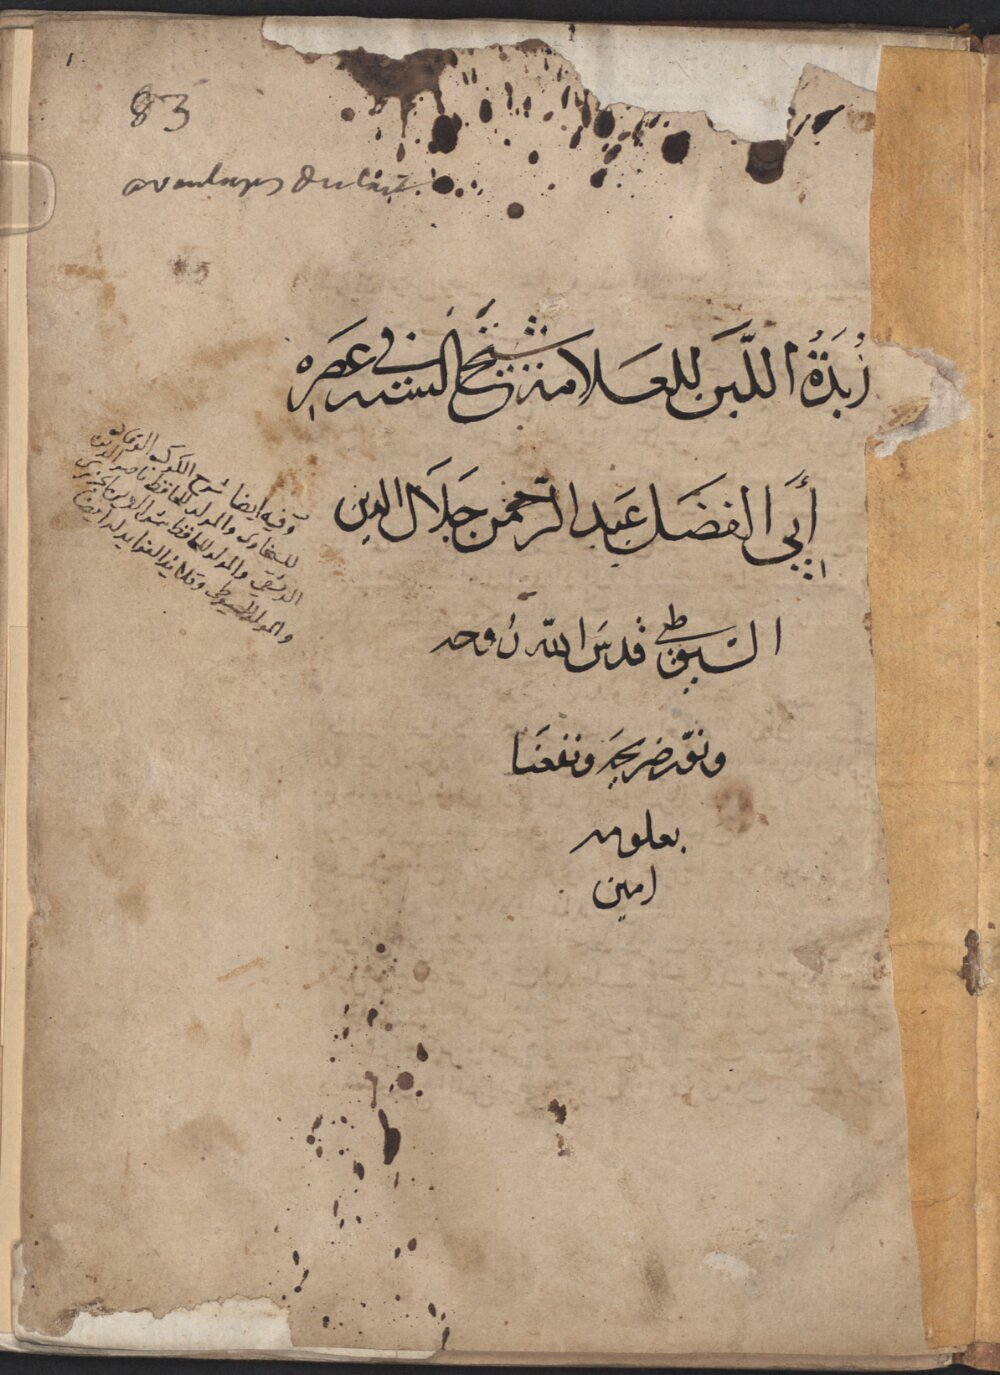 83
avantages du lait
زُبَدَةُ اللّبَن للعلامة شيخ السنه في عصَره
أَبِي الفضَل عَبد الرّحمن جَلَال الدين
السّيوطي قدسَ الله روحه
ونوّر ضريحَه ونفعنَا
بعلومه
امين
وفيه ايضا شرح الكوكب الوقاد
للسخاوى والمولد للحافظ ناصر الدين
الدمشقي والمولد للحافظ شمس الدين ابن الجزرى
والمولد للسيوطي وقلائد الفوايد له ايضا